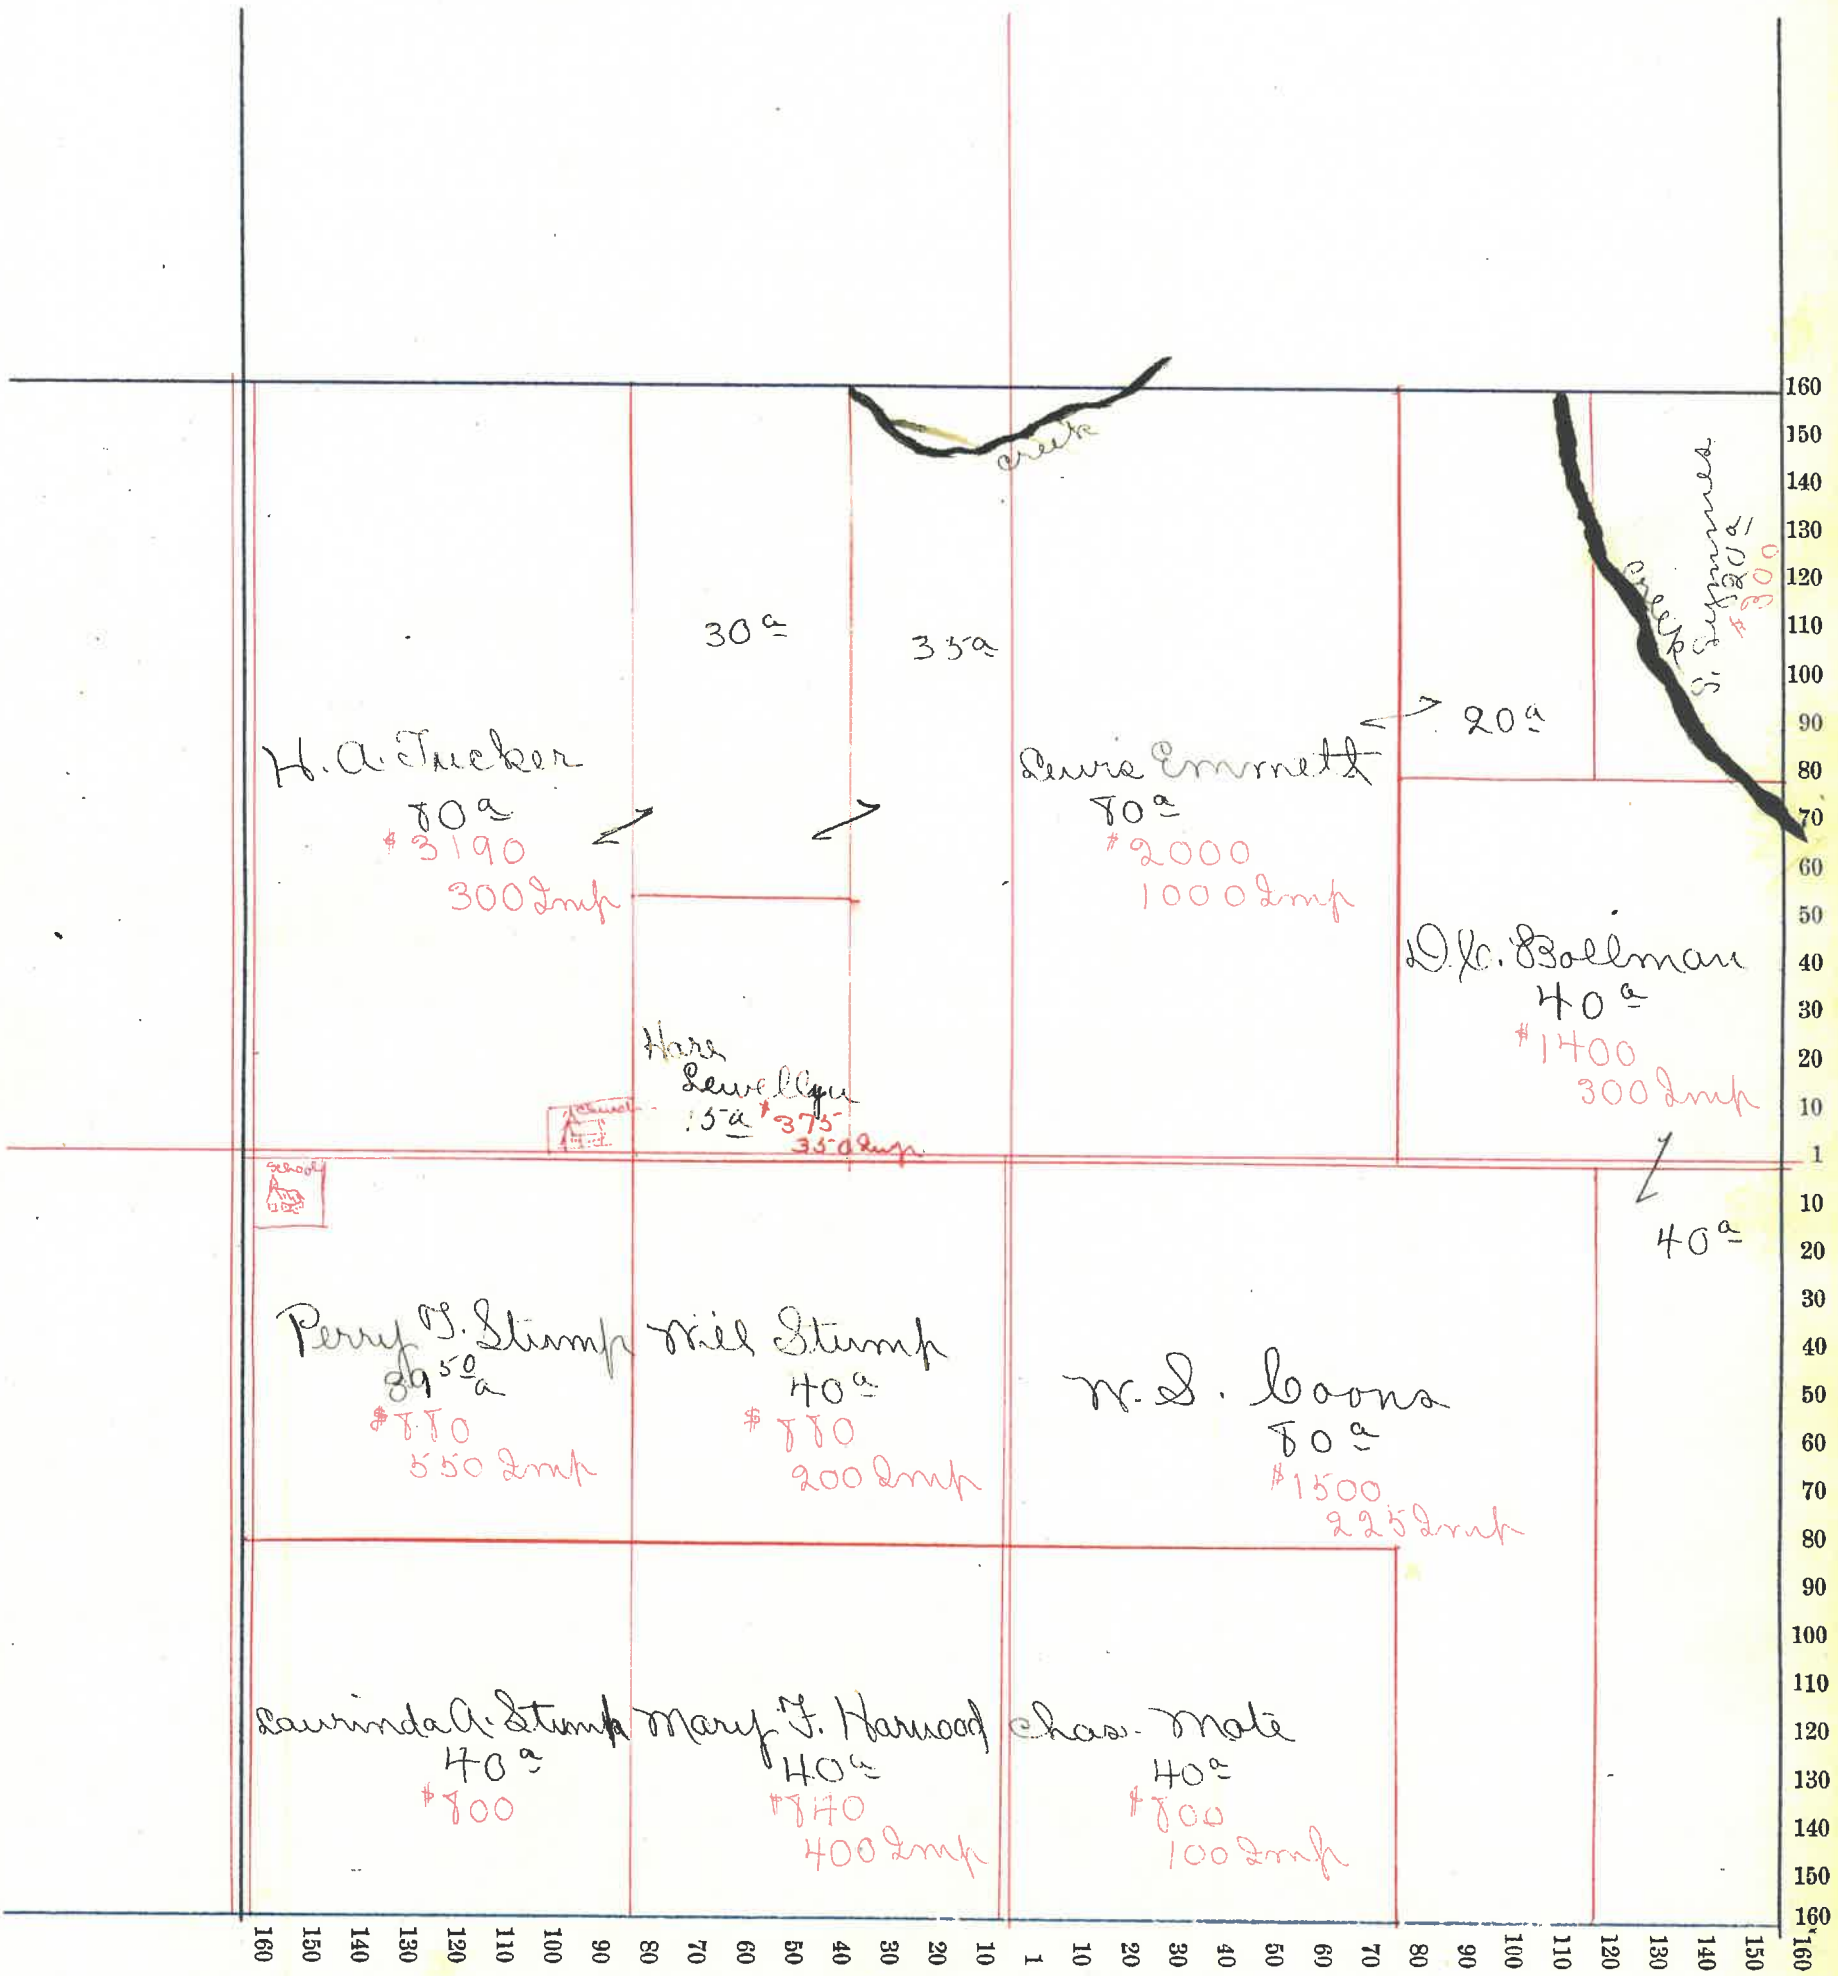 creek
30a
35a
H. A. Tucker
80a
$3190
300 Imp
Lewis Emmett
80a
$2000
1000 Imp
20a
creek
S. Symmes
20a
$300
D. C. Bollman
40a
$1400
300 Imp
Lewellyn
15a $375
350 Imp
church
school
40a
Perry T. Stump
39 50 a
$880
550 Imp
Will Stump
40a
$880
200 Imp
W. S. Coons
80a
$1500
225 Imp
Laurinda A. Stump
40a
$800
Mary F. Harwood
40a
$840
400 Imp
Chas. Mote
40a
$800
100 Imp
160
150
140
130
120
110
100
90
80
70
60
50
40
30
20
10
1
10
20
30
40
50
60
70
80
90
100
110
120
130
140
150
160
160 150 140 130 120 110 100 90 80 70 60 50 40 30 20 10 1 10 20 30 40 50 60 70 80 90 100 110 120 130 140 150 160